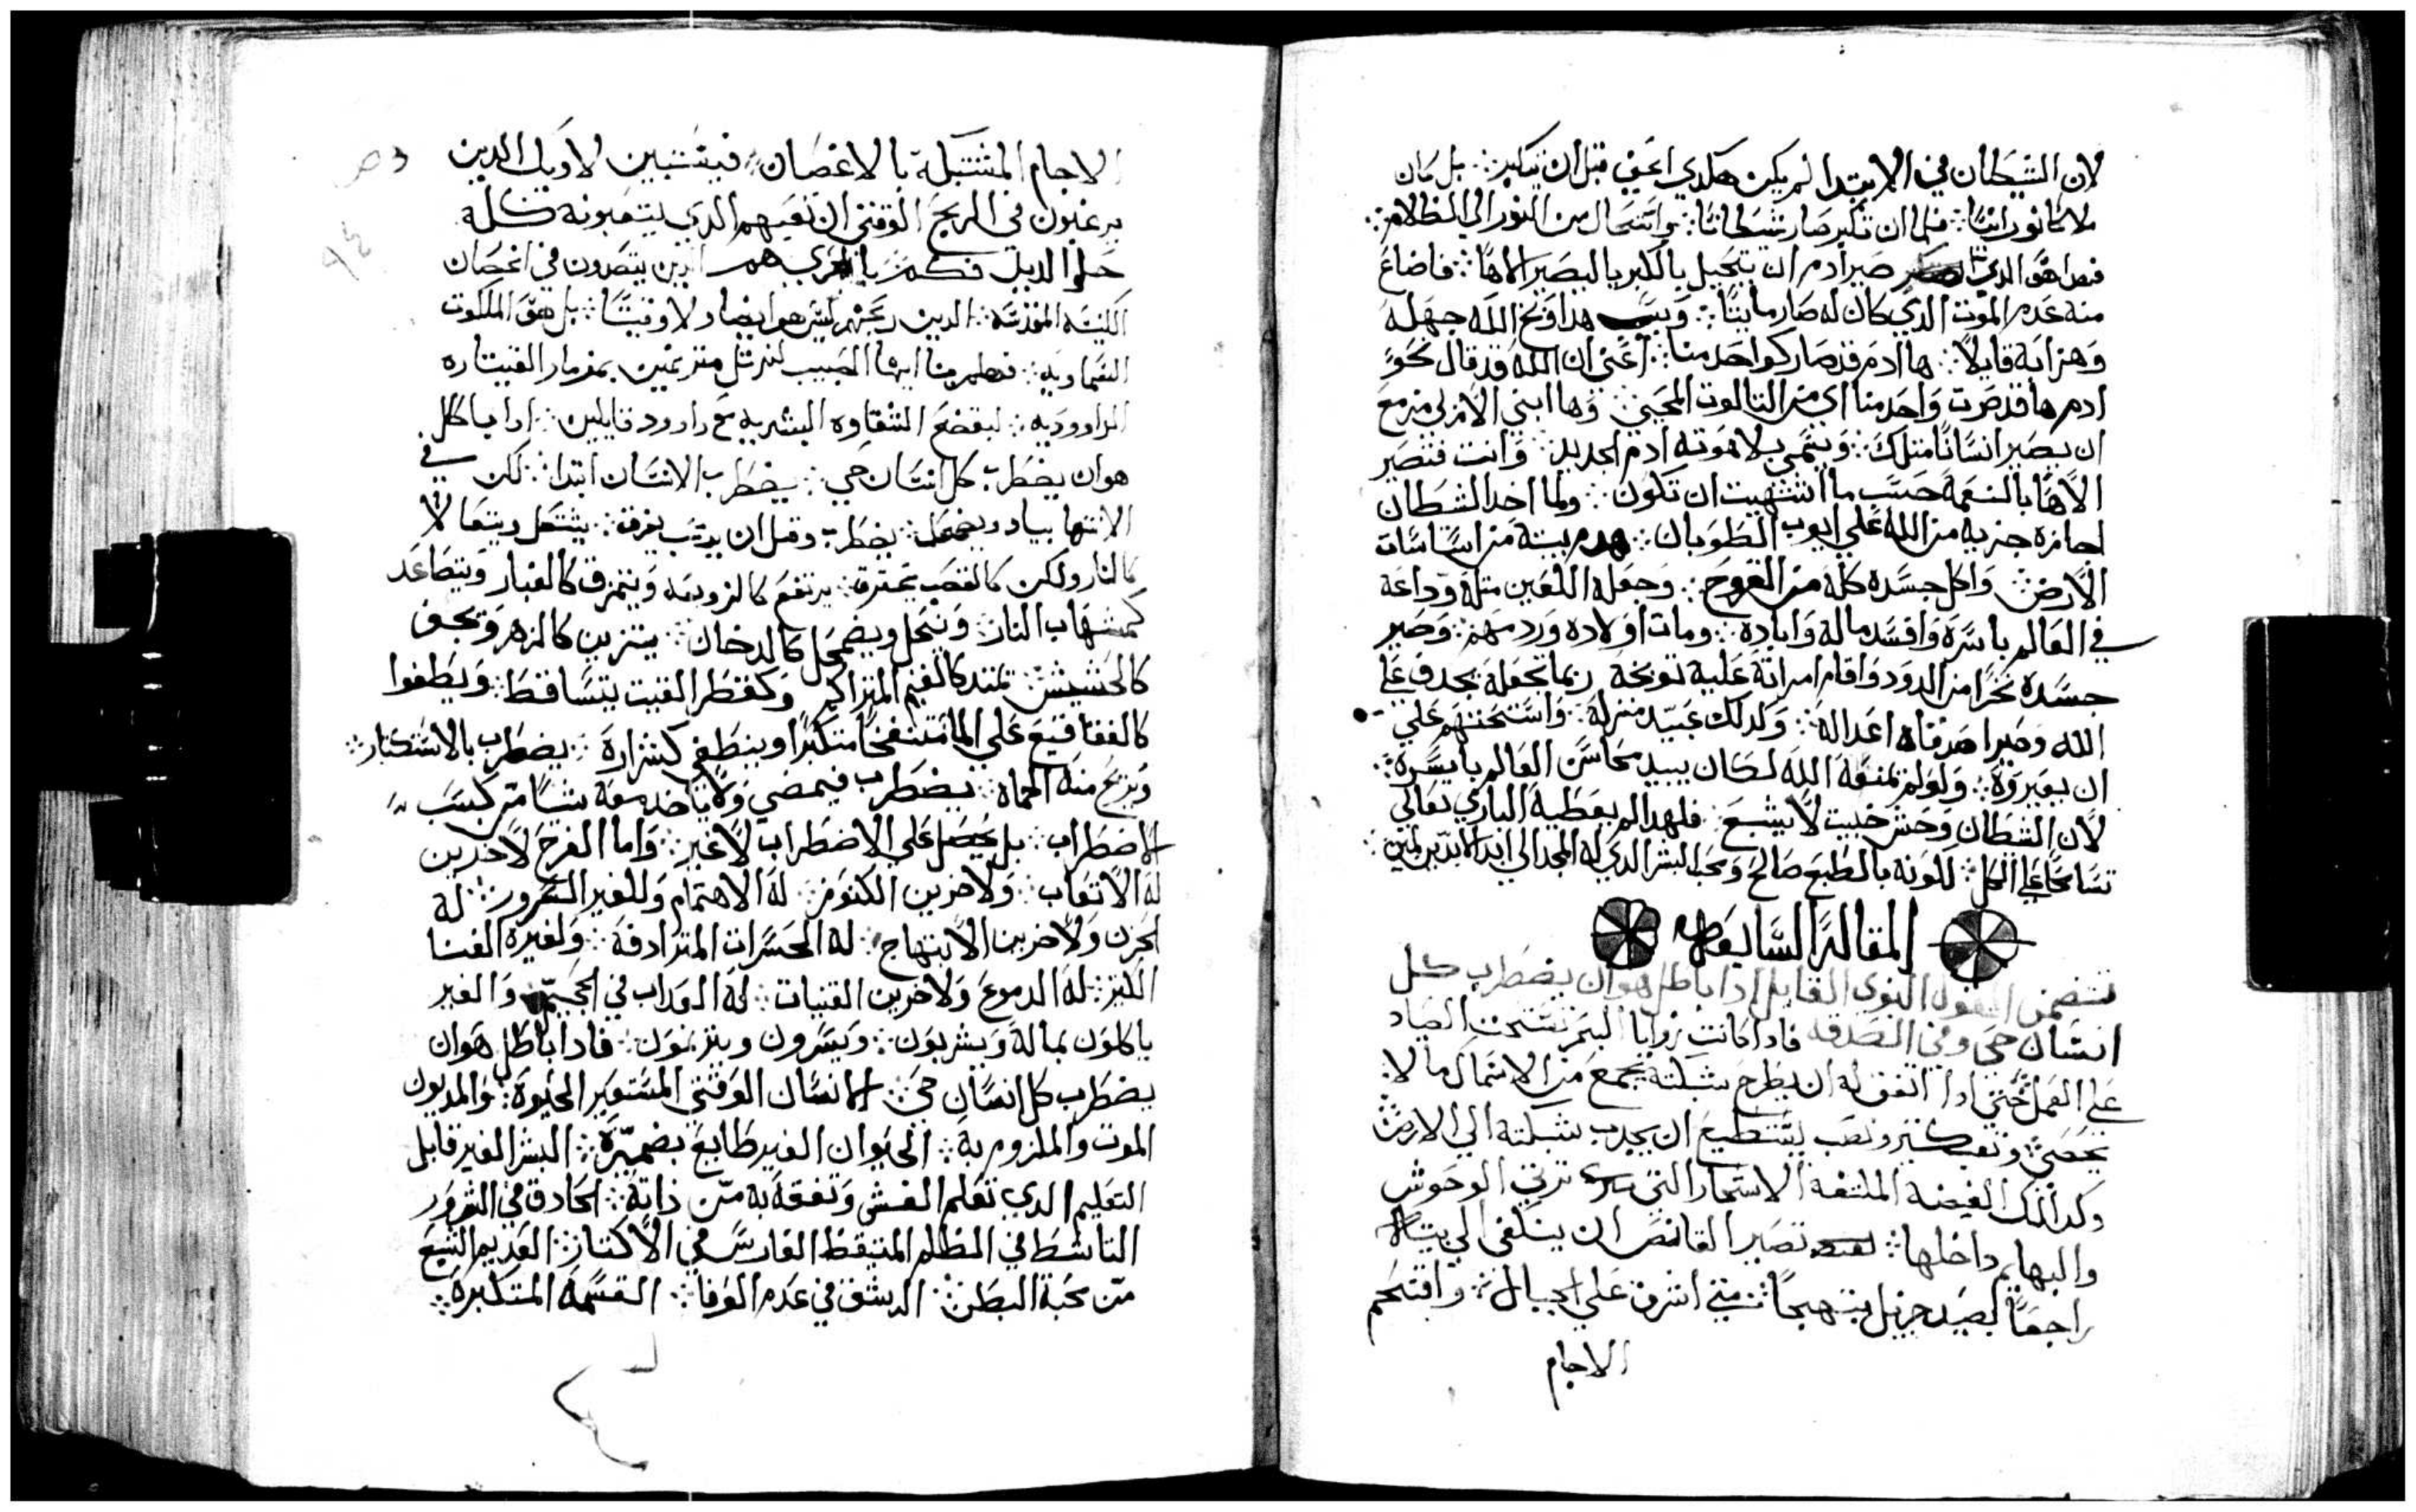 لان الشيطان في الابتدا لم يكن هكدي اعني قبل ان تكبر ⁘ بل كان
ملاكا نورانيا ⁘ فلما ان تكبر صار شيطانا ⁘ واستحال من النور الي الظلام ⁘
فهدا هو الدي صير ادم ان يتخيل بالكبريا ليصير الاها ⁘ فاضاع
منه عدم الموت الدي كان له صار مايتا ⁘ وبسبب هدا وبخ الله جهله
وهزا به قايلا ⁘ ها ادم قد صار كواحد منا ⁘ اعني ان الله قد قال نحو
ادم ها قد صرت واحد منا اي من التالوت المحيي ⁘ وها ابني الازلي مزمع
ان يصير انسانا متلك ⁘ ويسمي بلاهوته ادم الجديد ⁘ وانت فتصير
الاها بالنعمة حسب ما اشتهيت ان تكون ⁘ ولما اخد الشطان
اجازه جزيه من الله علي ايوب الطوبان ⁘ هدم بيته من اساسات
الارض ⁘ واكل جسده كله من القروح ⁘ وجعله اللعين متلة وداعة
في العالم باسره وافسد ماله واباده ⁘ ومات اولاده وردمهم ⁘ وصير
جسده نخرا من الدود واقام امراته عليه توبخه ربما تجعله يجدف علي
الله وصير اصدقاه اعدا له ⁘ ولدلك عبيد منزله ⁘ واستحتهم علي
ان يعيروه ⁘ ولو لم تمنعه الله لكان يبيد محاسن العالم باسره ⁘
لان الشطان وحش خبيت لا يشبع ⁘ فلهدا لم يعطيه الباري تعالي
تسامحا علي الكل ⁘ لكونه بالطبع صالح ومحب البشر الدي له المجد الي ابد الابدين امين ⁘
المقالة السابعه
تتضمن القول النبوي القايل ادا باطل هو ان يضطرب كل
انسان حي وفي الصدقه فادا كانت زوايا البحر تستحت الصياد
علي العمل حتي ادا اتفق له ان يطرح شبكته يجمع من الاسماك ما لا
يحصي ⁘ وتعب كتير ونصب يستطيع ان يجدب شبكته الي الارض ⁘
وكدالك الغيضه الملتفة الاشجار التي تربي الوحوش
والبهايم داخلها ⁘ تصير القانص ان ينكفي الي بيته
راجعا بصيد جزيل مبتهجا ⁘ متي اشرق علي الجبال ⁘ واقتحم
الاجام
الاجام المشتبكة بالاغصان ⁘ فيستبين لاوليك الدين
يرغبون في الربح الوقتي ان تعبهم الدي يتعبونه كله
حلو الديد فكم يا تري هم الدين يتصدون في اغصان
الكنيسه المقدسه ⁘ الدين ربحهم ليس هو ايضا ولا وقتيا ⁘ بل هو الملكوت
السماويه ⁘ فهلم بنا ايها الحبيب لنرتل مترنمين بمزمار القيتاره
الداووديه ⁘ لنفضح الشقاوه البشريه مع داوود قايلين ⁘ ادا باطل
هو ان يضطرب كل انسان حي ⁘ يضطرب الانسان ابتدا ⁘ لكن في
الانتها يباد ويضمحل ⁘ يضطرب وقبل ان يرتب يغرق ⁘ يشتعل ويتعالا
كالنار ولكن كالقصب يحترق ⁘ يرتفع كالزوبعه ويتمزق كالغبار ويتصاعد
كشهاب النار ⁘ وينحل ويضمحل كالدخان ⁘ يتزين كالزهر ويجف
كالحشيش ⁘ يمتد كالغيم المتراكم وكقطر الغيت يتساقط ⁘ ويطفوا
كالفقاقيع علي الما متنفخا متكبرا وينطفي كشراره ⁘ يضطرب بالاستكتار ⁘
وبريح منه الحماه ⁘ يضطرب فيمضي ولا ياخد معه شيا من كسب
الاضطراب ⁘ بل يحصل علي الاضطراب لا غير ⁘ واما الفرح لاخرين
له الاتعاب ⁘ ولاخرين الكنوز ⁘ له الاهتمام وللغير السرور ⁘ له
الحزن ولاخرين الابتهاج ⁘ له الحسرات المترادفة ⁘ ولغيره الغنا
الكتير ⁘ له الدموع ولاخرين القنيات ⁘ له العداب في الجحيم ⁘ والغير
ياكلون بماله ويشربون ⁘ ويسرون ويترنمون ⁘ فادا باطل هو ان
يضطرب كل انسان حي ⁘ الانسان الوقتي المستعير الحيوة ⁘ والمديون
الموت والملزوم به ⁘ الحيوان الغير طايع بضميره ⁘ البشر الغير قابل
التعليم الدي تعلم الغش وتفقه به من ذاته ⁘ الحادق في الشرور
الناشط في الظلم المتيقظ الفارس في الاكتنار ⁘ العديم الشبع
من محبة البطن ⁘ الرشق في عدم الوفا ⁘ القسمة المتكبرة ⁘